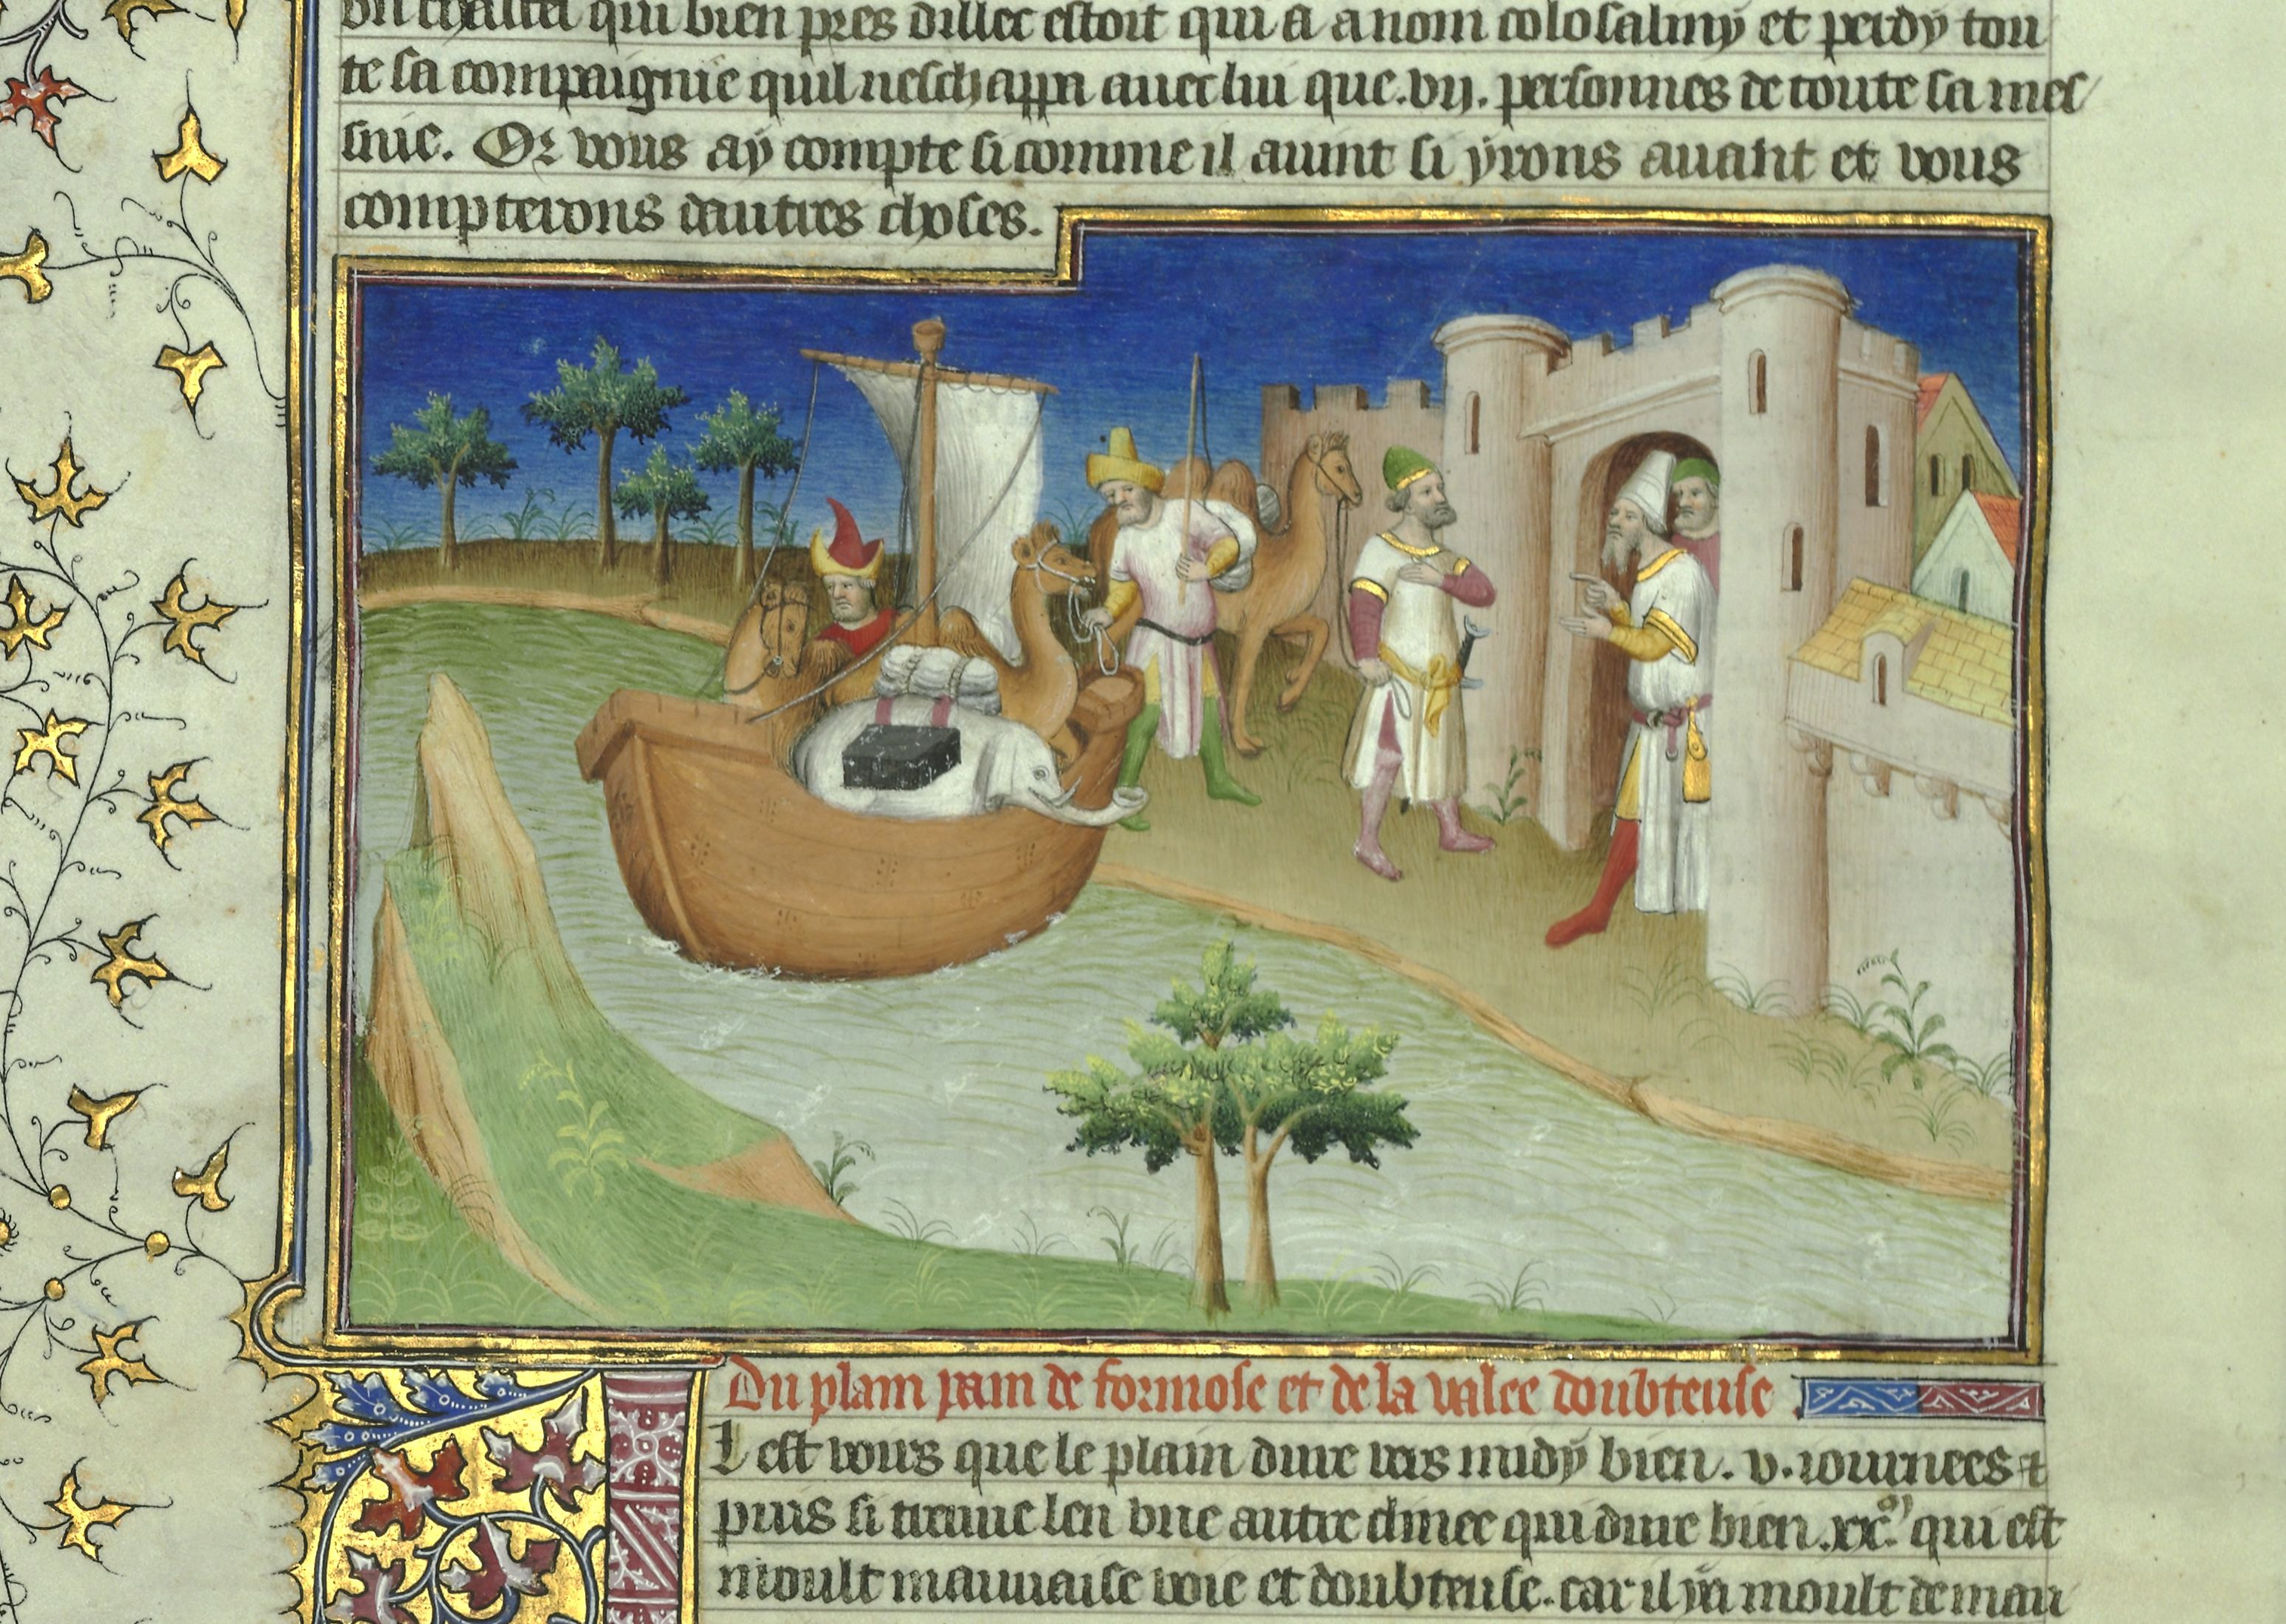 vn chastel qui bien pres dillec estoit qui a a nom colosalmy et perdy tou
te sa compaignie quil neschappa auec lui que .vij. personnes de toute sa mes
nie. Or vous ay compte si comme il auint si yrons auant et vous
compterons dautres choses.
Du plain pain de formose et de la valee doubteuse
Il est vours que le plain dure vers midy bien .v. iournees et
puis si treuue len vne autre clinee qui dure bien .xx. qui est
moult mauuaise voie et doubteuse. car il y a moult de mau